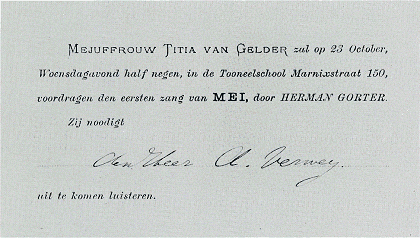 Mejuffrouw Titia van Gelder zal op 23 October,
Woensdagavond half negen, in de Tooneelschool Marnixstraat 150,
voordragen den eersten zang van MEI, door HERMAN GORTER.
Zij noodigt
den Heer A. Verwey.
uit te komen luisteren.